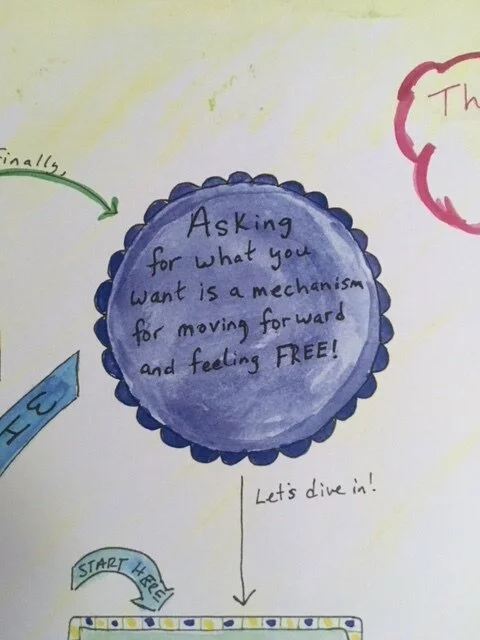 Finally,
Th
Asking
for what you
want is a mechanism
for moving forward
and feeling FREE!
Let's dive in!
START HERE